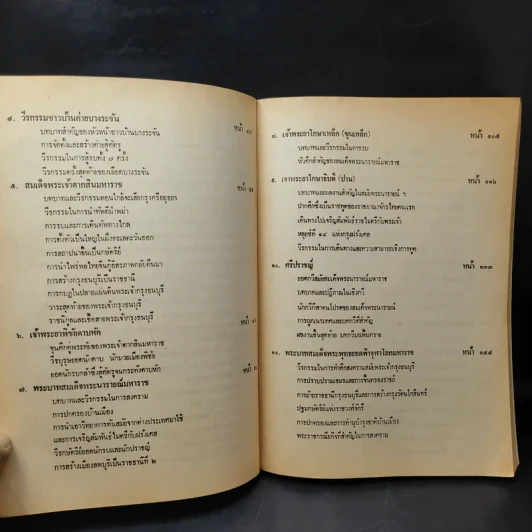 ๔. วีรกรรมชาวบ้านค่ายบางระจัน
บทบาทสำคัญของหัวหน้าชาวบ้านบางระจัน หน้า
การจัดตั้งและสร้างค่ายสู้ศัตรู
วีรกรรมในการสู้รบทั้ง ๗ ครั้ง
วีรกรรมครั้งสุดท้ายของเลือดบางระจัน
๕. สมเด็จพระเจ้าตากสินมหาราช หน้า
บทบาทและวีรกรรมตอนใกล้จะเสียกรุงศรีอยุธยา
วีรกรรมในการนำทัพตีฝ่าพม่า
การรบและการเดินทัพทางไกล
การตั้งตัวเป็นใหญ่ในฝั่งทะเลตะวันออก
การสถาปนาขึ้นเป็นกษัตริย์
การนำไพร่พลไทยจีนกู้อิสรภาพกลับคืนมา
การสร้างกรุงธนบุรีเป็นราชธานี
การกบฏในปลายแผ่นดินพระเจ้ากรุงธนบุรี
วาระสุดท้ายของพระเจ้ากรุงธนบุรี
ราชนิกูลและเชื้อสายพระเจ้ากรุงธนบุรี
๖. เจ้าพระยาพิชัยดาบหัก หน้า
ขุนศึกคู่พระทัยของพระเจ้าตากสินมหาราช
วีรบุรุษยอดนักดาบ นักมวยเมืองพิชัย
ยอดนักรบกล้าซึ่งสู้ศัตรูจนกระทั่งดาบหัก
๗. พระบาทสมเด็จพระนารายณ์มหาราช หน้า
บทบาทและวีรกรรมในการสงคราม
การปกครองบ้านเมือง
การนำเอาวิทยาการทันสมัยจากต่างประเทศมาใช้
และการเจริญสัมพันธ์ไมตรีกับฝรั่งเศส
วีรกษัตริย์ยอดนักรบและนักปราชญ์
การสร้างเมืองลพบุรีเป็นราชธานีที่ ๒
๘. เจ้าพระยาโกษาเหล็ก (ขุนเหล็ก) หน้า ๑๐๕
บทบาทและวีรกรรมในการรบ
หัวศึกสำคัญของสมเด็จพระนารายณ์มหาราช
๙. เจ้าพระยาโกษาธิบดี (ปาน) หน้า ๑๑๖
บทบาทและผลงานสำคัญในสมัยพระนารายณ์ ฯ
เดินทางไปเจริญสัมพันธ์ราชไมตรีกับพระเจ้า
หลุยซ์ที่ ๑๔ แห่งกรุงฝรั่งเศส
วีรกรรมในการเดินทางและความสามารถเชิงการทูต
๑๐. ศรีปราชญ์ หน้า ๑๓๓
ยอดกวีสมัยสมเด็จพระนารายณ์มหาราช
บทบาทและปฏิภาณในเชิงกวี
การถูกเนรเทศและบทกวีที่สำคัญ
ผลงานชิ้นสุดท้าย บทเรียบพื้นทราย
๑๑. พระบาทสมเด็จพระพุทธยอดฟ้าจุฬาโลกมหาราช หน้า ๑๔๕
วีรกรรมในการทำศึกสงครามสมัยพระเจ้ากรุงธนบุรี
การปราบปรามเขมรและการขึ้นครองราชย์
การย้ายราชธานีกรุงธนบุรีและการสร้างกรุงรัตนโกสินทร์
ปฐมกษัตริย์แห่งราชวงศ์จักรี
การปกครองและการทำนุบำรุงชาติบ้านเมือง
พระราชกรณียกิจที่สำคัญในการสงคราม